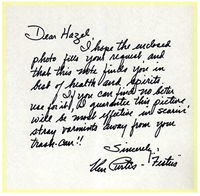 Dear Hazel,
I hope the enclosed
photo fills your request and
that this note finds you in
best of health and spirits.
If you can find no better
use for it, I guarantee this picture
will be most effective in scarin'
stray varmints away from your
trash-can!!
Sincerely,
Ken Curtis - "Festus"